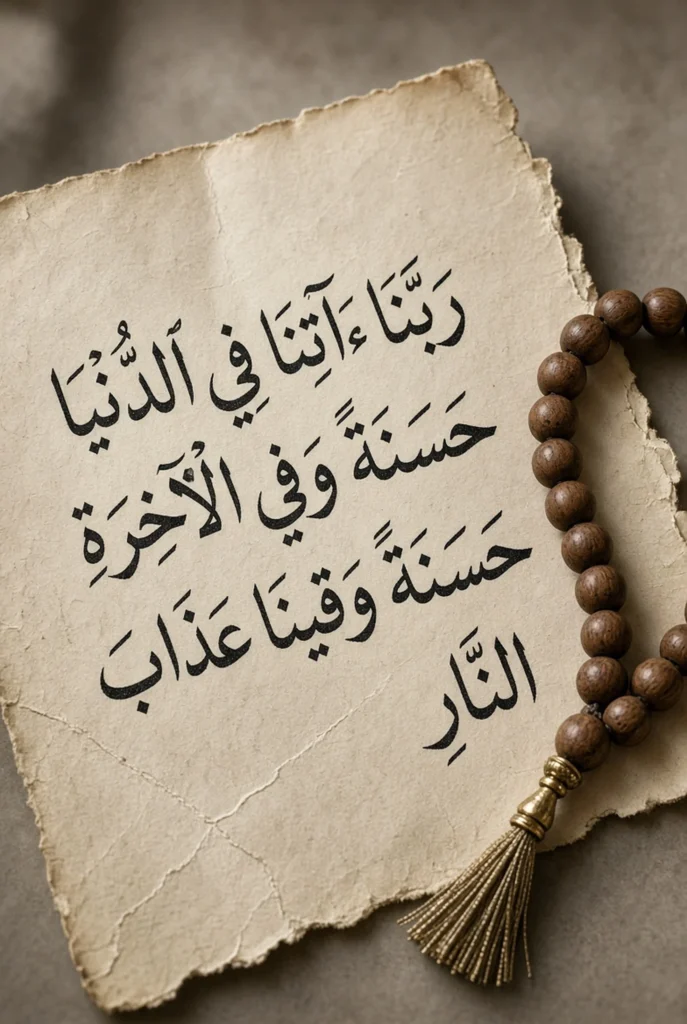 رَبَّنَا ءَاتِنَا فِي ٱلدُّنْيَا
حَسَنَةً وَفِي الْآخِرَةِ
حَسَنَةً وَقِينَا عَذَابَ
النَّارِ